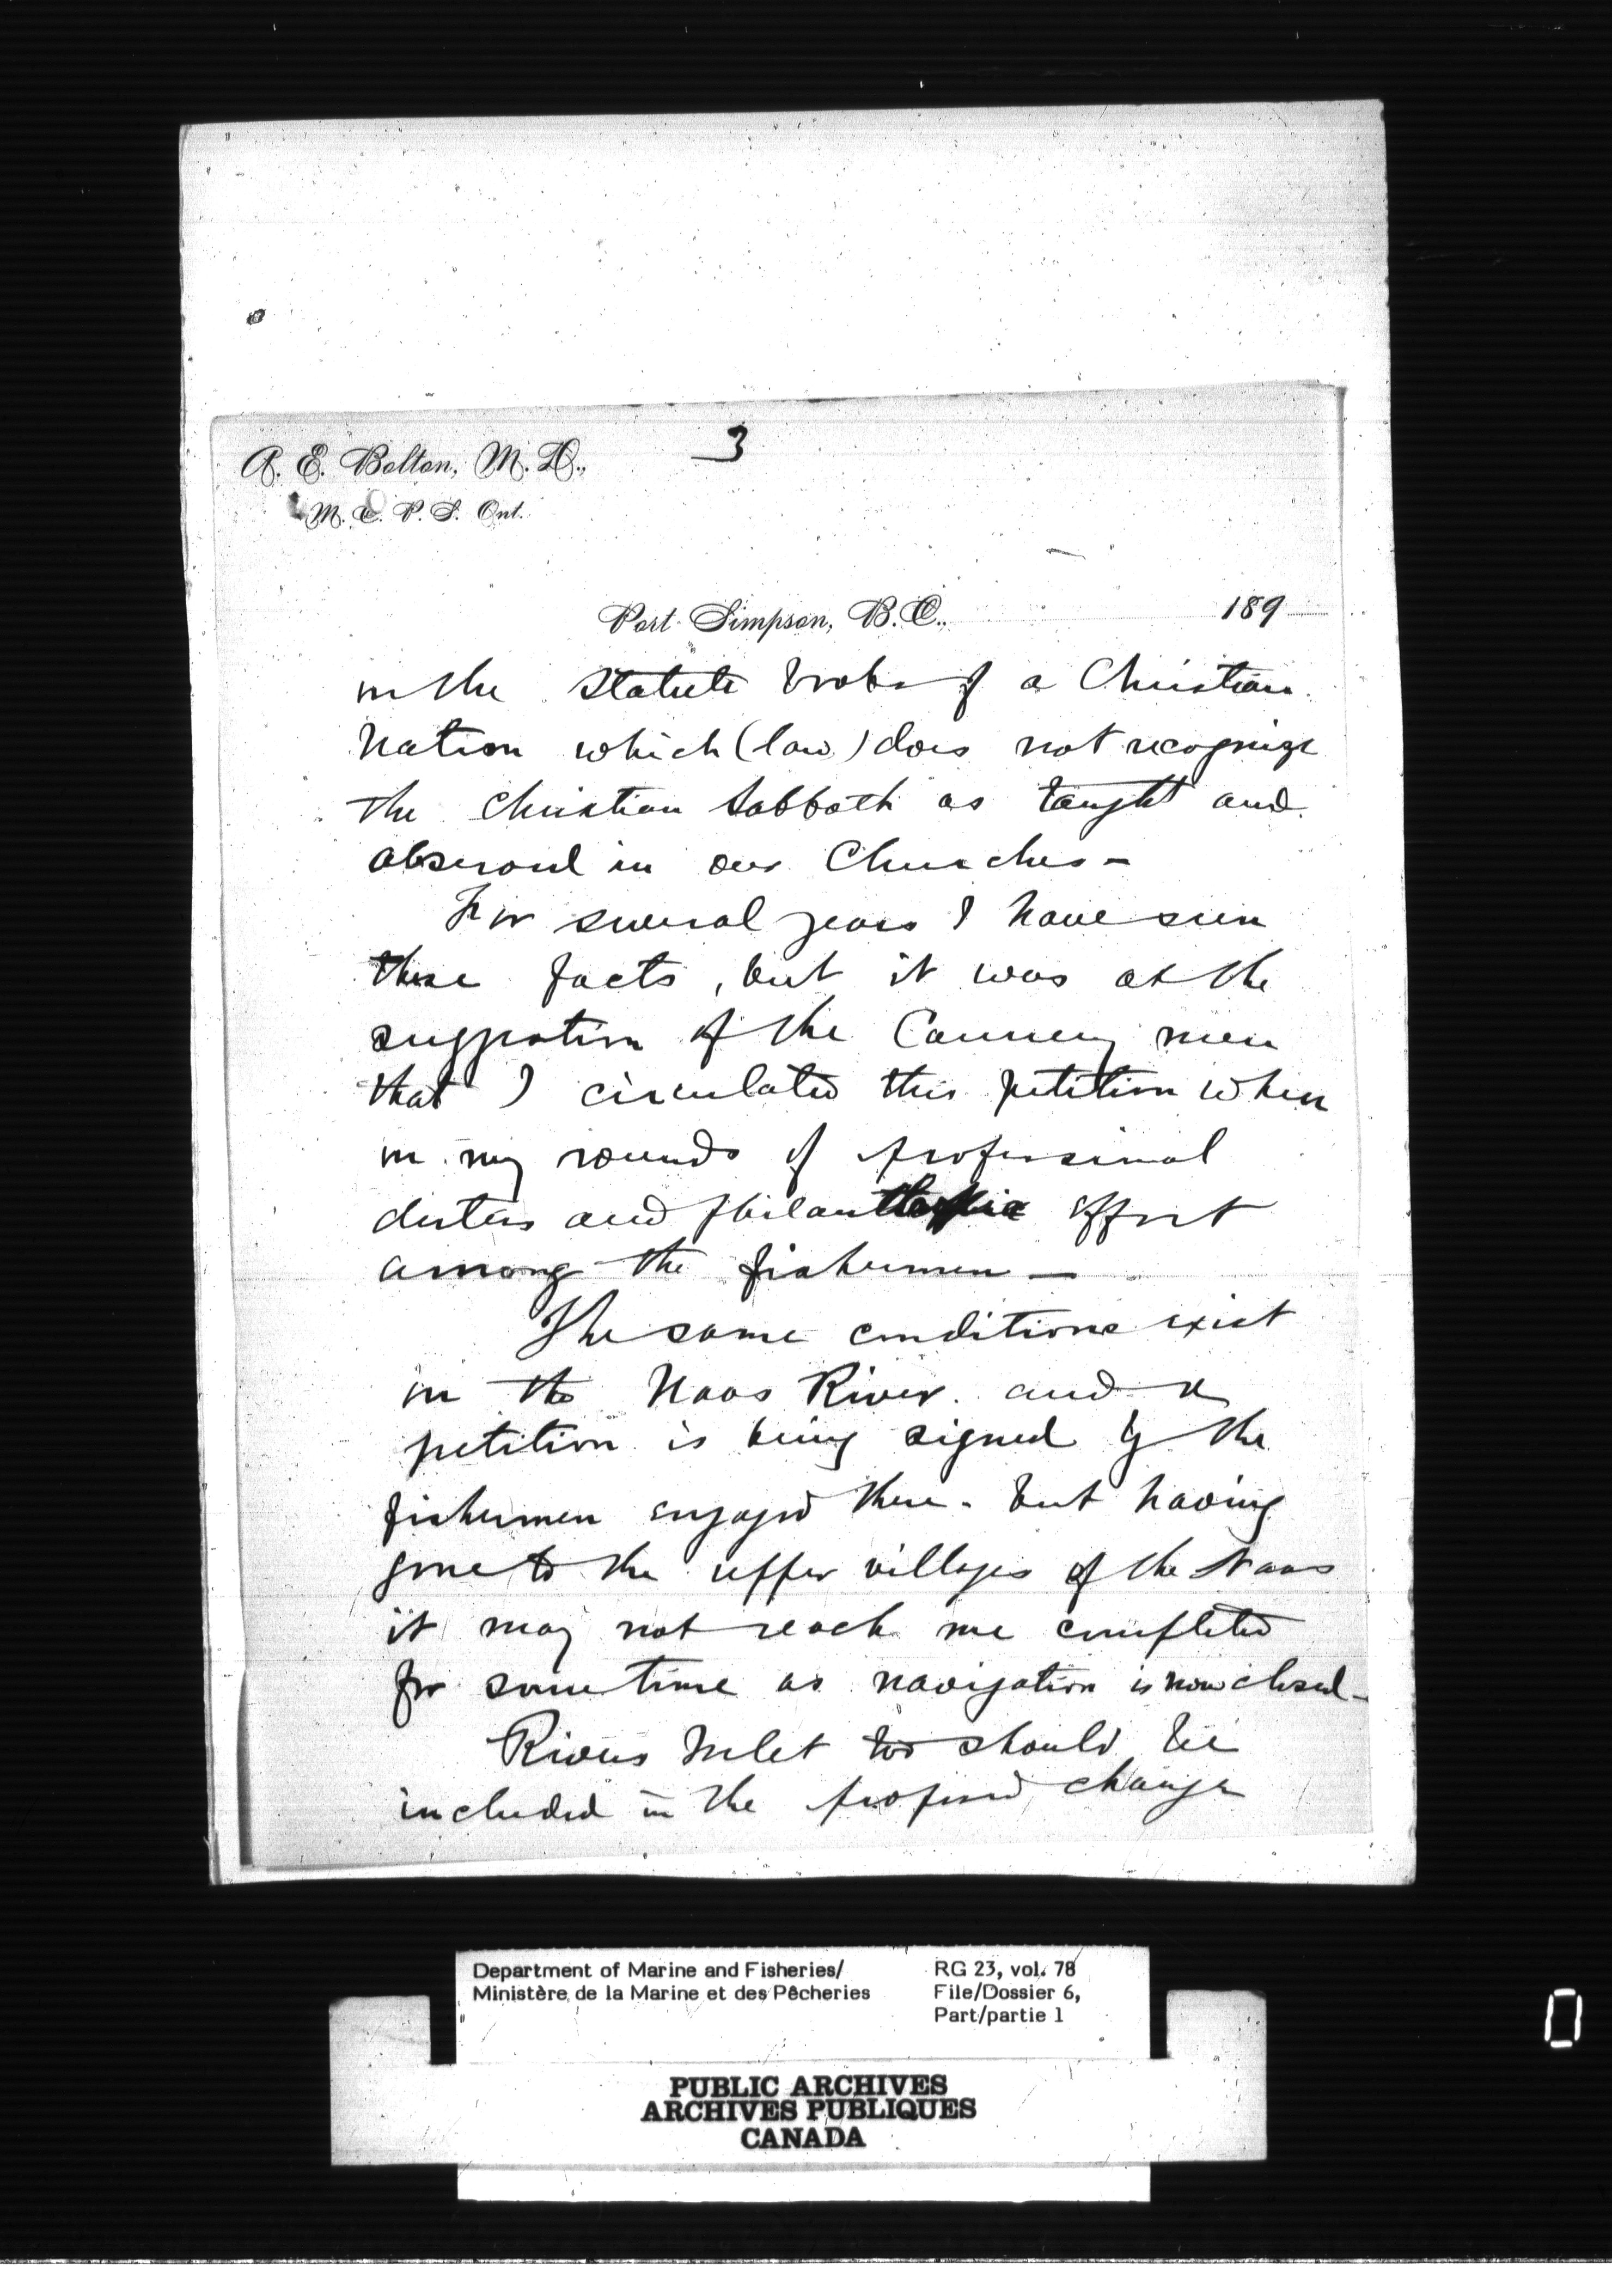 3
A. E. Bolton, M. D.,
M. C. P. S. Ont.
Port Simpson, B. C., 189
in the Statute books of a Christian
Nation which (law) does not recognize
the Christian Sabbath as taught and
observed in our Churches —
For several years I have seen
these facts, but it was at the
suggestion of the Cannery men
that I circulated this petition when
in my rounds of professional
duties and philanthropic effort
among the fishermen —
The same conditions exist
in the Naas River and a
petition is being signed by the
fishermen engaged there - but having
gone to the upper villages of the Naas
it may not reach me completed
for some time as navigation is now closed -
Rivers Inlet too should be
included in the proposed change
Department of Marine and Fisheries/ RG 23, vol. 78
Ministère de la Marine et des Pêcheries File/Dossier 6,
Part/partie 1
PUBLIC ARCHIVES
ARCHIVES PUBLIQUES
CANADA